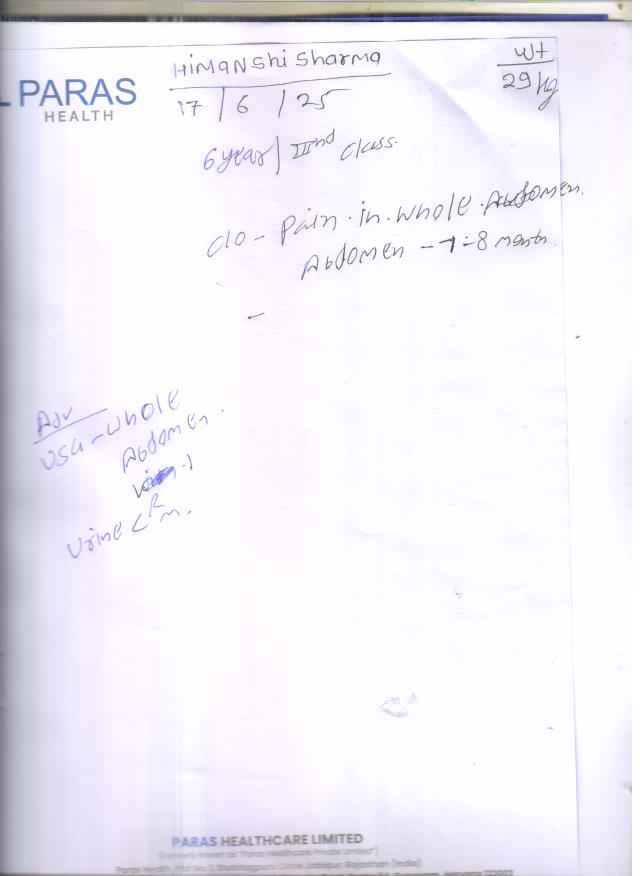 PARAS
HEALTH
HIMANShi Sharma
17 / 6 / 25
Wt
29 kg
6 year / IInd Class.
c/o - Pain in whole Abdomen.
Abdomen - 7-8 month
Adv
USG - Whole
Abdomen.
Urine < R m.
PARAS HEALTHCARE LIMITED
(Formerly known as "Paras Healthcare Private Limited")
Paras Health, Plot No. 1, Shobhagpura Circle, Udaipur, Rajasthan (India)